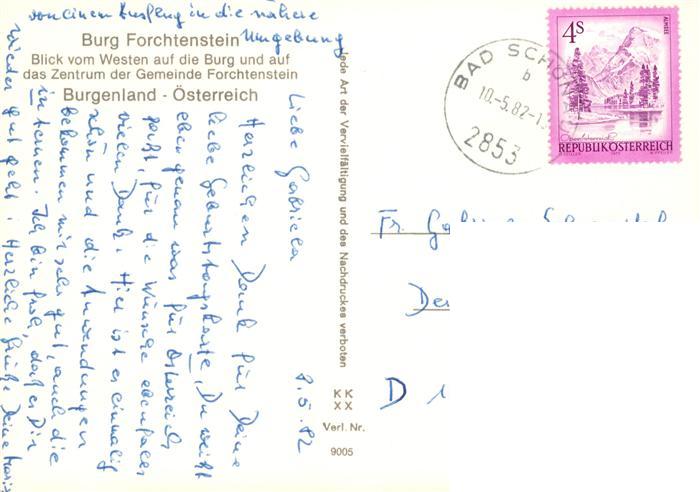 von einem Ausflug in die nähere
Umgebung
Burg Forchtenstein
Blick vom Westen auf die Burg und auf
das Zentrum der Gemeinde Forchtenstein
Burgenland - Österreich
8.5.82
Liebe Gabriela
Herzlichen Dank für Deine
liebe Geburtstagskarte, Du weißt
eben genau was für Österreich
paßt, für die Wünsche ebenfalls
vielen Dank. Hier ist es einmalig
schön und die Anwendungen
bekommen mir sehr gut, auch die
internen. Ich bin froh, daß es Dir
wieder gut geht. Herzliche Grüße Deine
Jede Art der Vervielfältigung und des Nachdruckes verboten
KK
XX
Verl. Nr.
9005
BAD SCHÖN
b
10.-5.82-1
2853
4S
ALMSEE
Oberösterreich
REPUBLIK ÖSTERREICH
Fr.
D 1